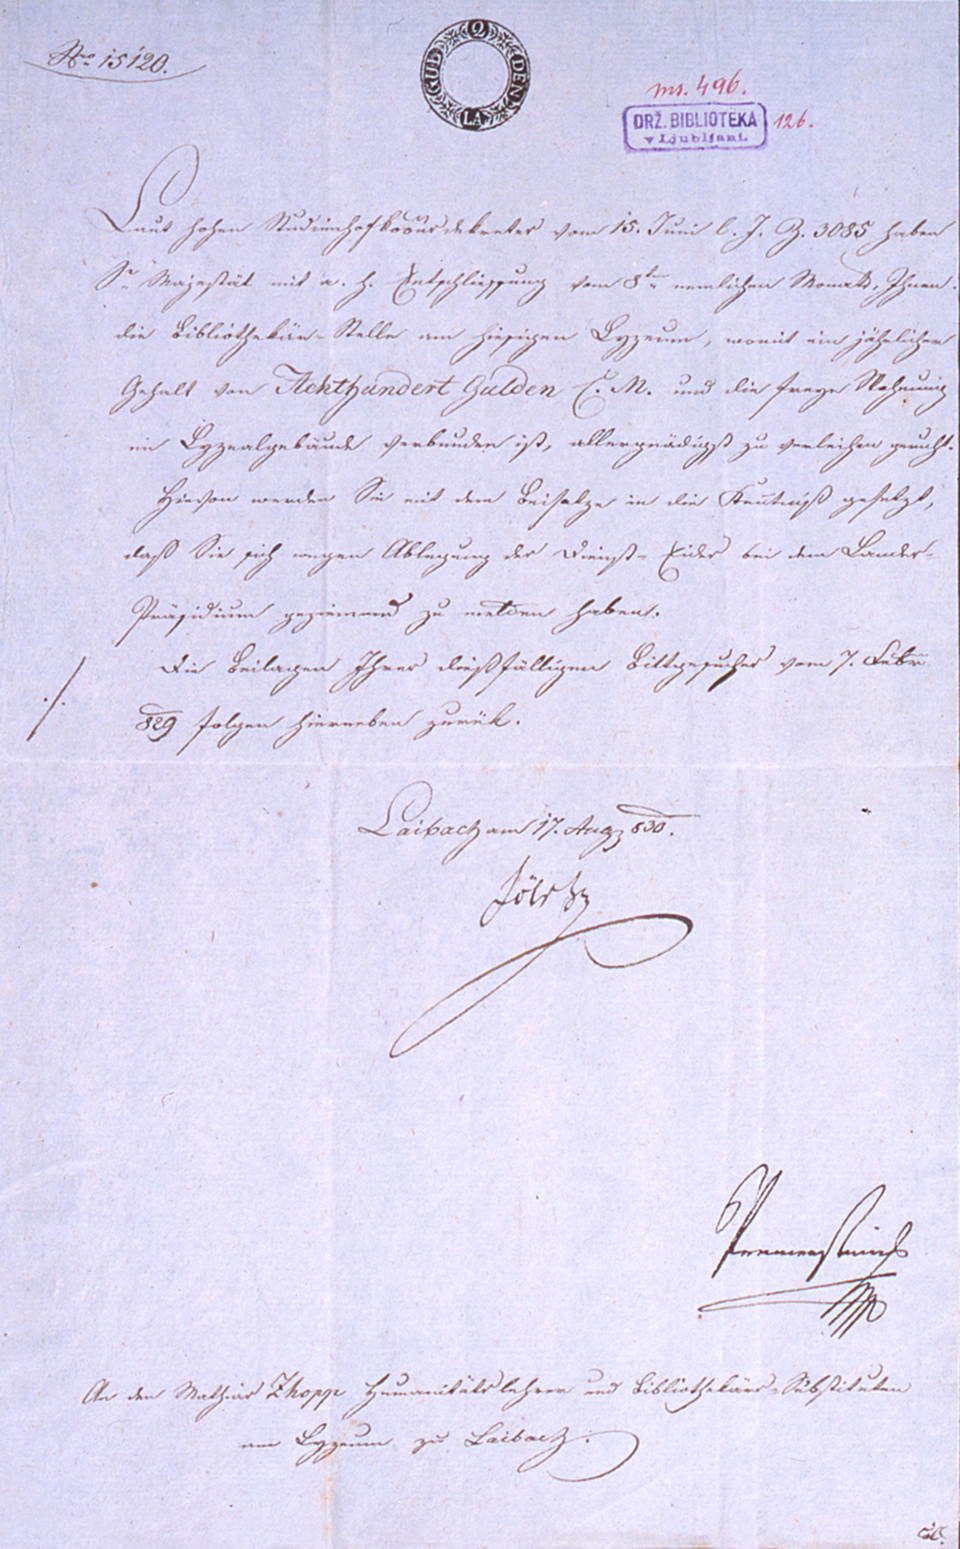 No 15120.
2 GUL DEN LA
ms. 496.
DRŽ. BIBLIOTEKA
v Ljubljani.
126.
Laut hohen Studienhofkoõns dekretes vom 15. Juni l. J. Z. 3085 haben
Sr Majestät mit a. h. Entschliessung vom 8ten nemlichen Monats, Ihnen
die Bibliothekär-Stelle am hiesigen Lyzeum, womit ein jährlicher
Gehalt von Achthundert Gulden C. M. und die freye Wohnung
im Lyzealgebäude verbunden ist, allergnädigst zu verleihen geruht.
Hievon werden Sie mit dem Beisatze in die Kenntniß gesetzt,
daß Sie sich wegen Ablegung des Dienst-Eides bei dem Landes-
Präsidium geziemend zu melden haben.
Die Beilagen Ihres dießfälligen Bittgesuches vom 7. Febr
./.
829 folgen hierneben zurük.
Laibach am 17. Aug 830.
An den Mathias Zhopp Humanitätslehrer und Bibliothekärs-Substituten
am Lyzeum zu Laibach.